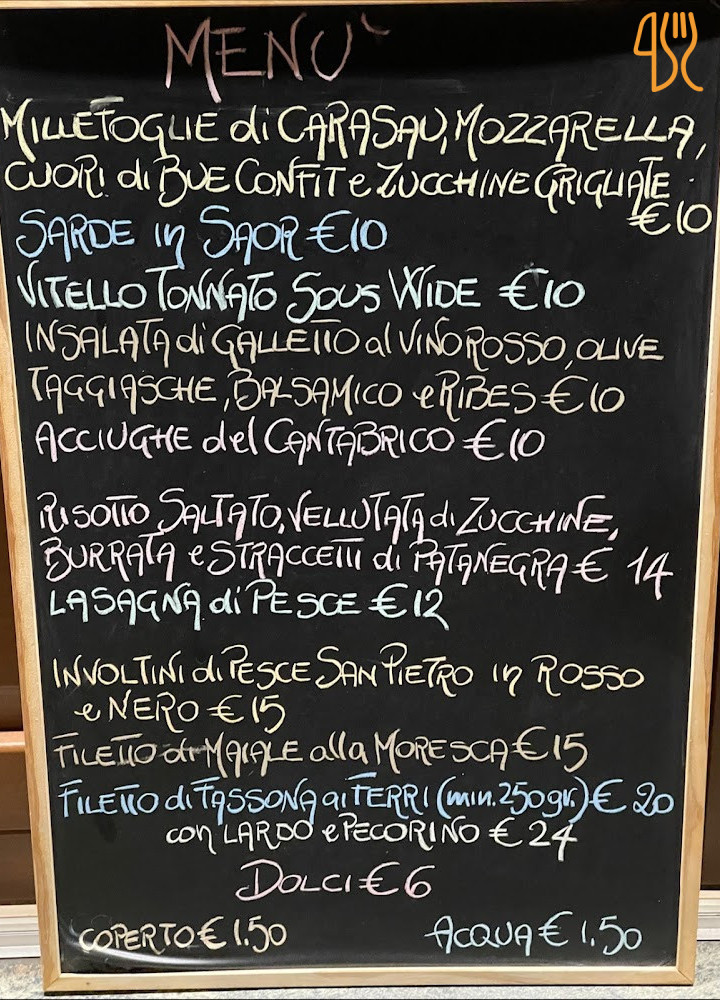 MENU`
MILLEFOGLIE di CARASAU, MOZZARELLA,
CUORI di BUE CONFIT e ZUCCHINE GRIGLIATE
€10
SARDE in SAOR €10
VITELLO TONNATO SOUS WIDE €10
INSALATA di GALLETTO al VINO ROSSO, OLIVE
TAGGIASCHE, BALSAMICO e RIBES €10
ACCIUGHE del CANTABRICO €10
RISOTTO SALTATO, VELLUTATA di ZUCCHINE,
BURRATA e STRACCETTI di PATANEGRA € 14
LASAGNA di PESCE €12
INVOLTINI di PESCE SAN PIETRO in ROSSO
e NERO €15
FILETTO di MAIALE alla MORESCA €15
FILETTO di FASSONA ai FERRI (min. 250gr.) € 20
con LARDO e PECORINO € 24
DOLCI € 6
COPERTO € 1.50 ACQUA € 1,50